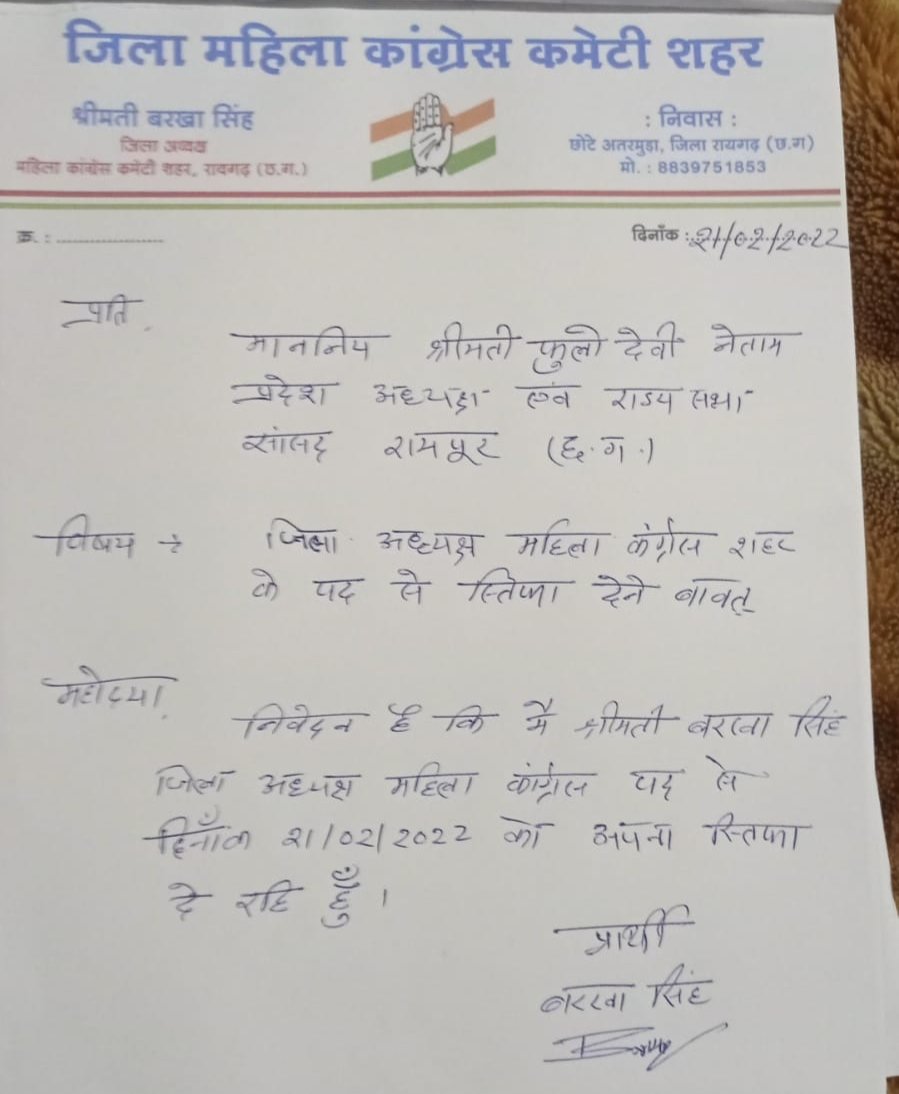 जिला महिला कांग्रेस कमेटी शहर
श्रीमती बरखा सिंह
जिला अध्यक्ष
महिला कांग्रेस कमेटी शहर, रायगढ़ (छ.ग.)
: निवास :
छोटे अतरमुड़ा, जिला रायगढ़ (छ.ग)
मो. : 8839751853
क्र. : ........................
दिनाँक : 21/02/2022
प्रति,
माननिय श्रीमती फुलो देवी नेताम
प्रदेश अध्यक्ष एवं राज्य सभा
सांसद रायपूर (छ.ग.)
विषय → जिला अध्यक्ष महिला कंग्रेस शहर
के पद से स्तिफा देने बावत्
महोदया,
निवेदन है कि मै श्रीमती बरखा सिंह
जिला अध्यक्ष महिला कांग्रेस पद से
दिनाँक 21/02/2022 को अपना स्तिफा
दे रहि हुँ ।
प्रार्थी
बरखा सिंह